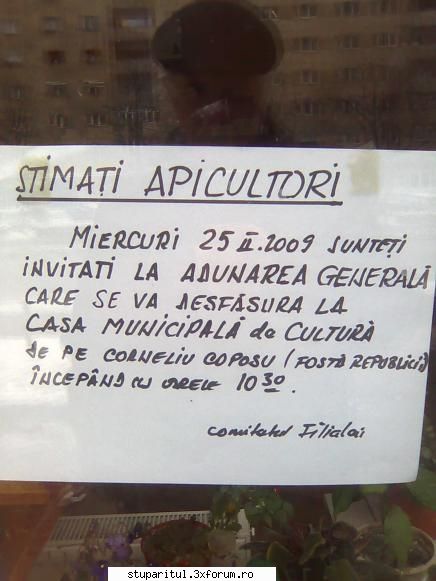 STIMAȚI APICULTORI
MIERCURI 25 II.2009 SUNTEȚI
INVITATI LA ADUNAREA GENERALĂ
CARE SE VA DESFĂSURA LA
CASA MUNICIPALĂ de CULTURĂ
de PE CORNELIU COPOSU (FOSTĂ REPUBLICII)
ÎNCEPÂND CU ORELE 10 30.
comitetul Filialei
stuparitul.3xforum.ro